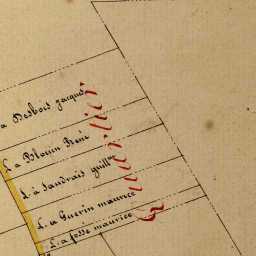 a Desbois Jacques
L a Blouin René
L a Jaudrais guill
L. a Guerin maurice
L. a fosse maurice